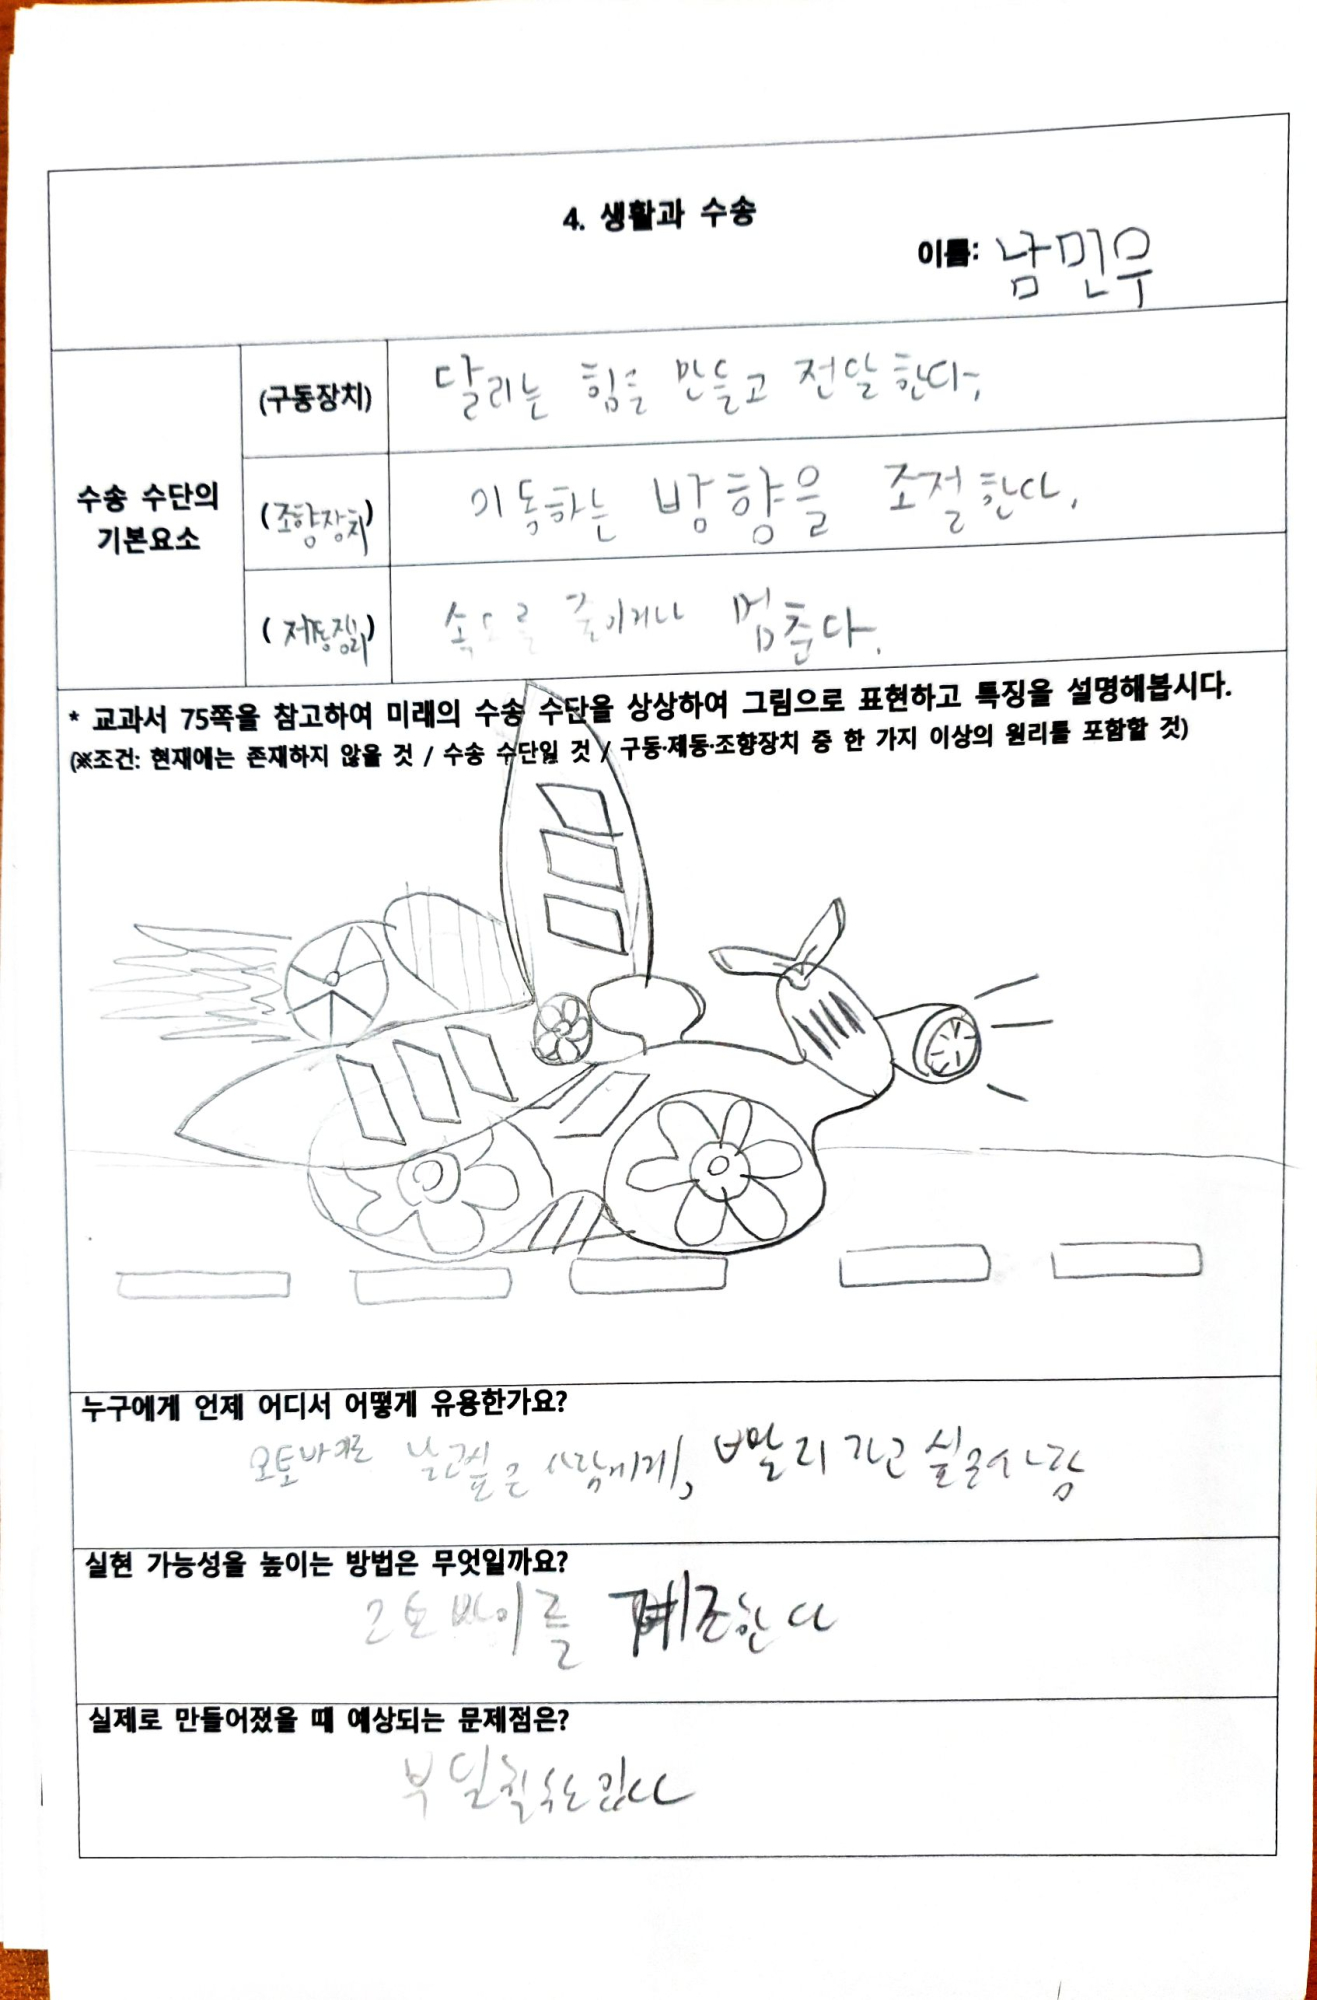 4. 생활과 수송
이름: 남민우
(구동장치) 달리는 힘을 만들고 전달한다.
수송 수단의
기본요소
(조향장치) 이동하는 방향을 조절한다.
(제동장치) 속도를 줄이거나 멈춘다.
* 교과서 75쪽을 참고하여 미래의 수송 수단을 상상하여 그림으로 표현하고 특징을 설명해봅시다.
(※조건: 현재에는 존재하지 않을 것 / 수송 수단일 것 / 구동·제동·조향장치 중 한 가지 이상의 원리를 포함할 것)
누구에게 언제 어디서 어떻게 유용한가요?
오토바이로 날고싶은 사람에게, 빨리 가고 싶은사람
실현 가능성을 높이는 방법은 무엇일까요?
오토바이를 계조한다
실제로 만들어졌을 때 예상되는 문제점은?
부딪칠수도있다